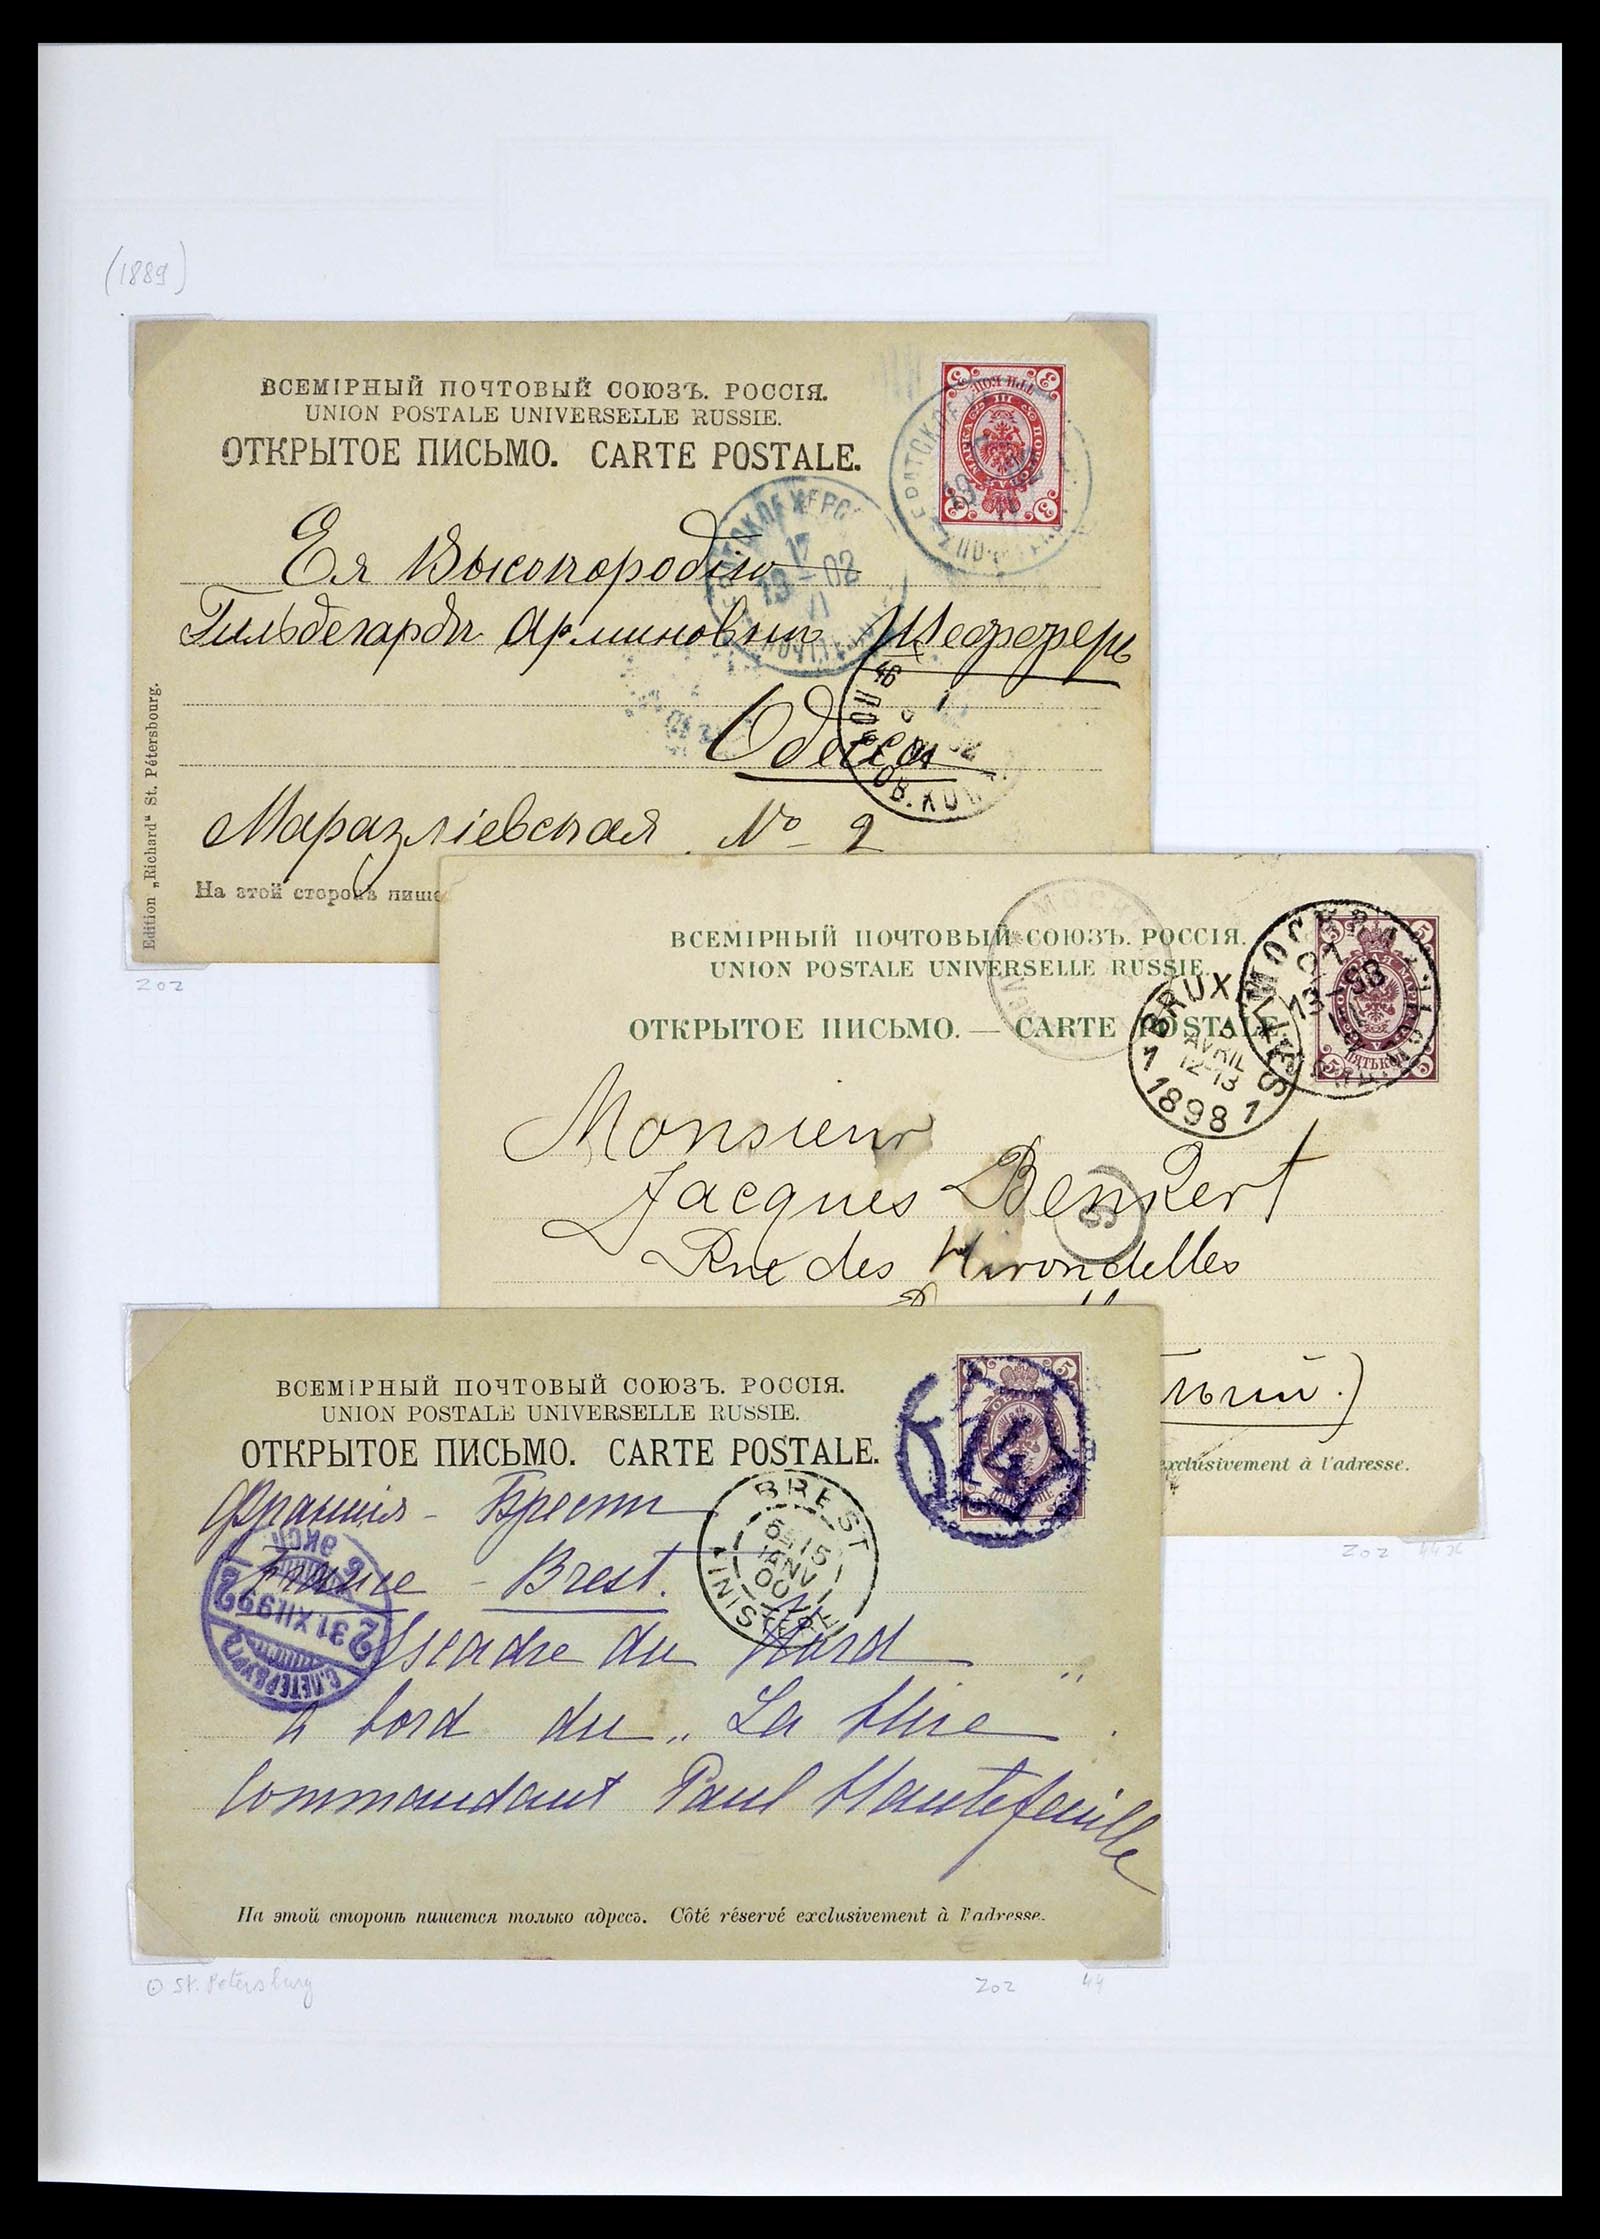 (1889)
ВСЕМІРНЫЙ ПОЧТОВЫЙ СОЮЗЪ. РОССІЯ.
UNION POSTALE UNIVERSELLE RUSSIE.
ОТКРЫТОЕ ПИСЬМО. CARTE POSTALE.
Ея Высокородію
Гильдегарды Арминовны Шефферъ
Одесса
Маразліевская № 2
На этой сторонѣ пише
Edition „Richard“ St. Pétersbourg.
17
19-02
VI
202
ВСЕМІРНЫЙ ПОЧТОВЫЙ СОЮЗЪ. РОССІЯ.
UNION POSTALE UNIVERSELLE RUSSIE.
ОТКРЫТОЕ ПИСЬМО. — CARTE POSTALE.
МОСКВА
BRUXELLES
AVRIL
12-13
1 1898 1
Monsieur
Jacques Benkert
Rue des Hirondelles
6
exclusivement à l'adresse.
202 44x
ВСЕМІРНЫЙ ПОЧТОВЫЙ СОЮЗЪ. РОССІЯ.
UNION POSTALE UNIVERSELLE RUSSIE.
ОТКРЫТОЕ ПИСЬМО. CARTE POSTALE.
14
Франція - Брестъ
France - Brest.
BREST
15
JANV
00
FINISTERE
С.ПЕТЕРБУРГЪ
2 31 XII 99 2
Escadre du Nord
à bord du „La Hire
Commandant Paul Hautefeuille
На этой сторонѣ пишется только адресъ. Côté réservé exclusivement à l'adresse.
St. Petersburg
202 44